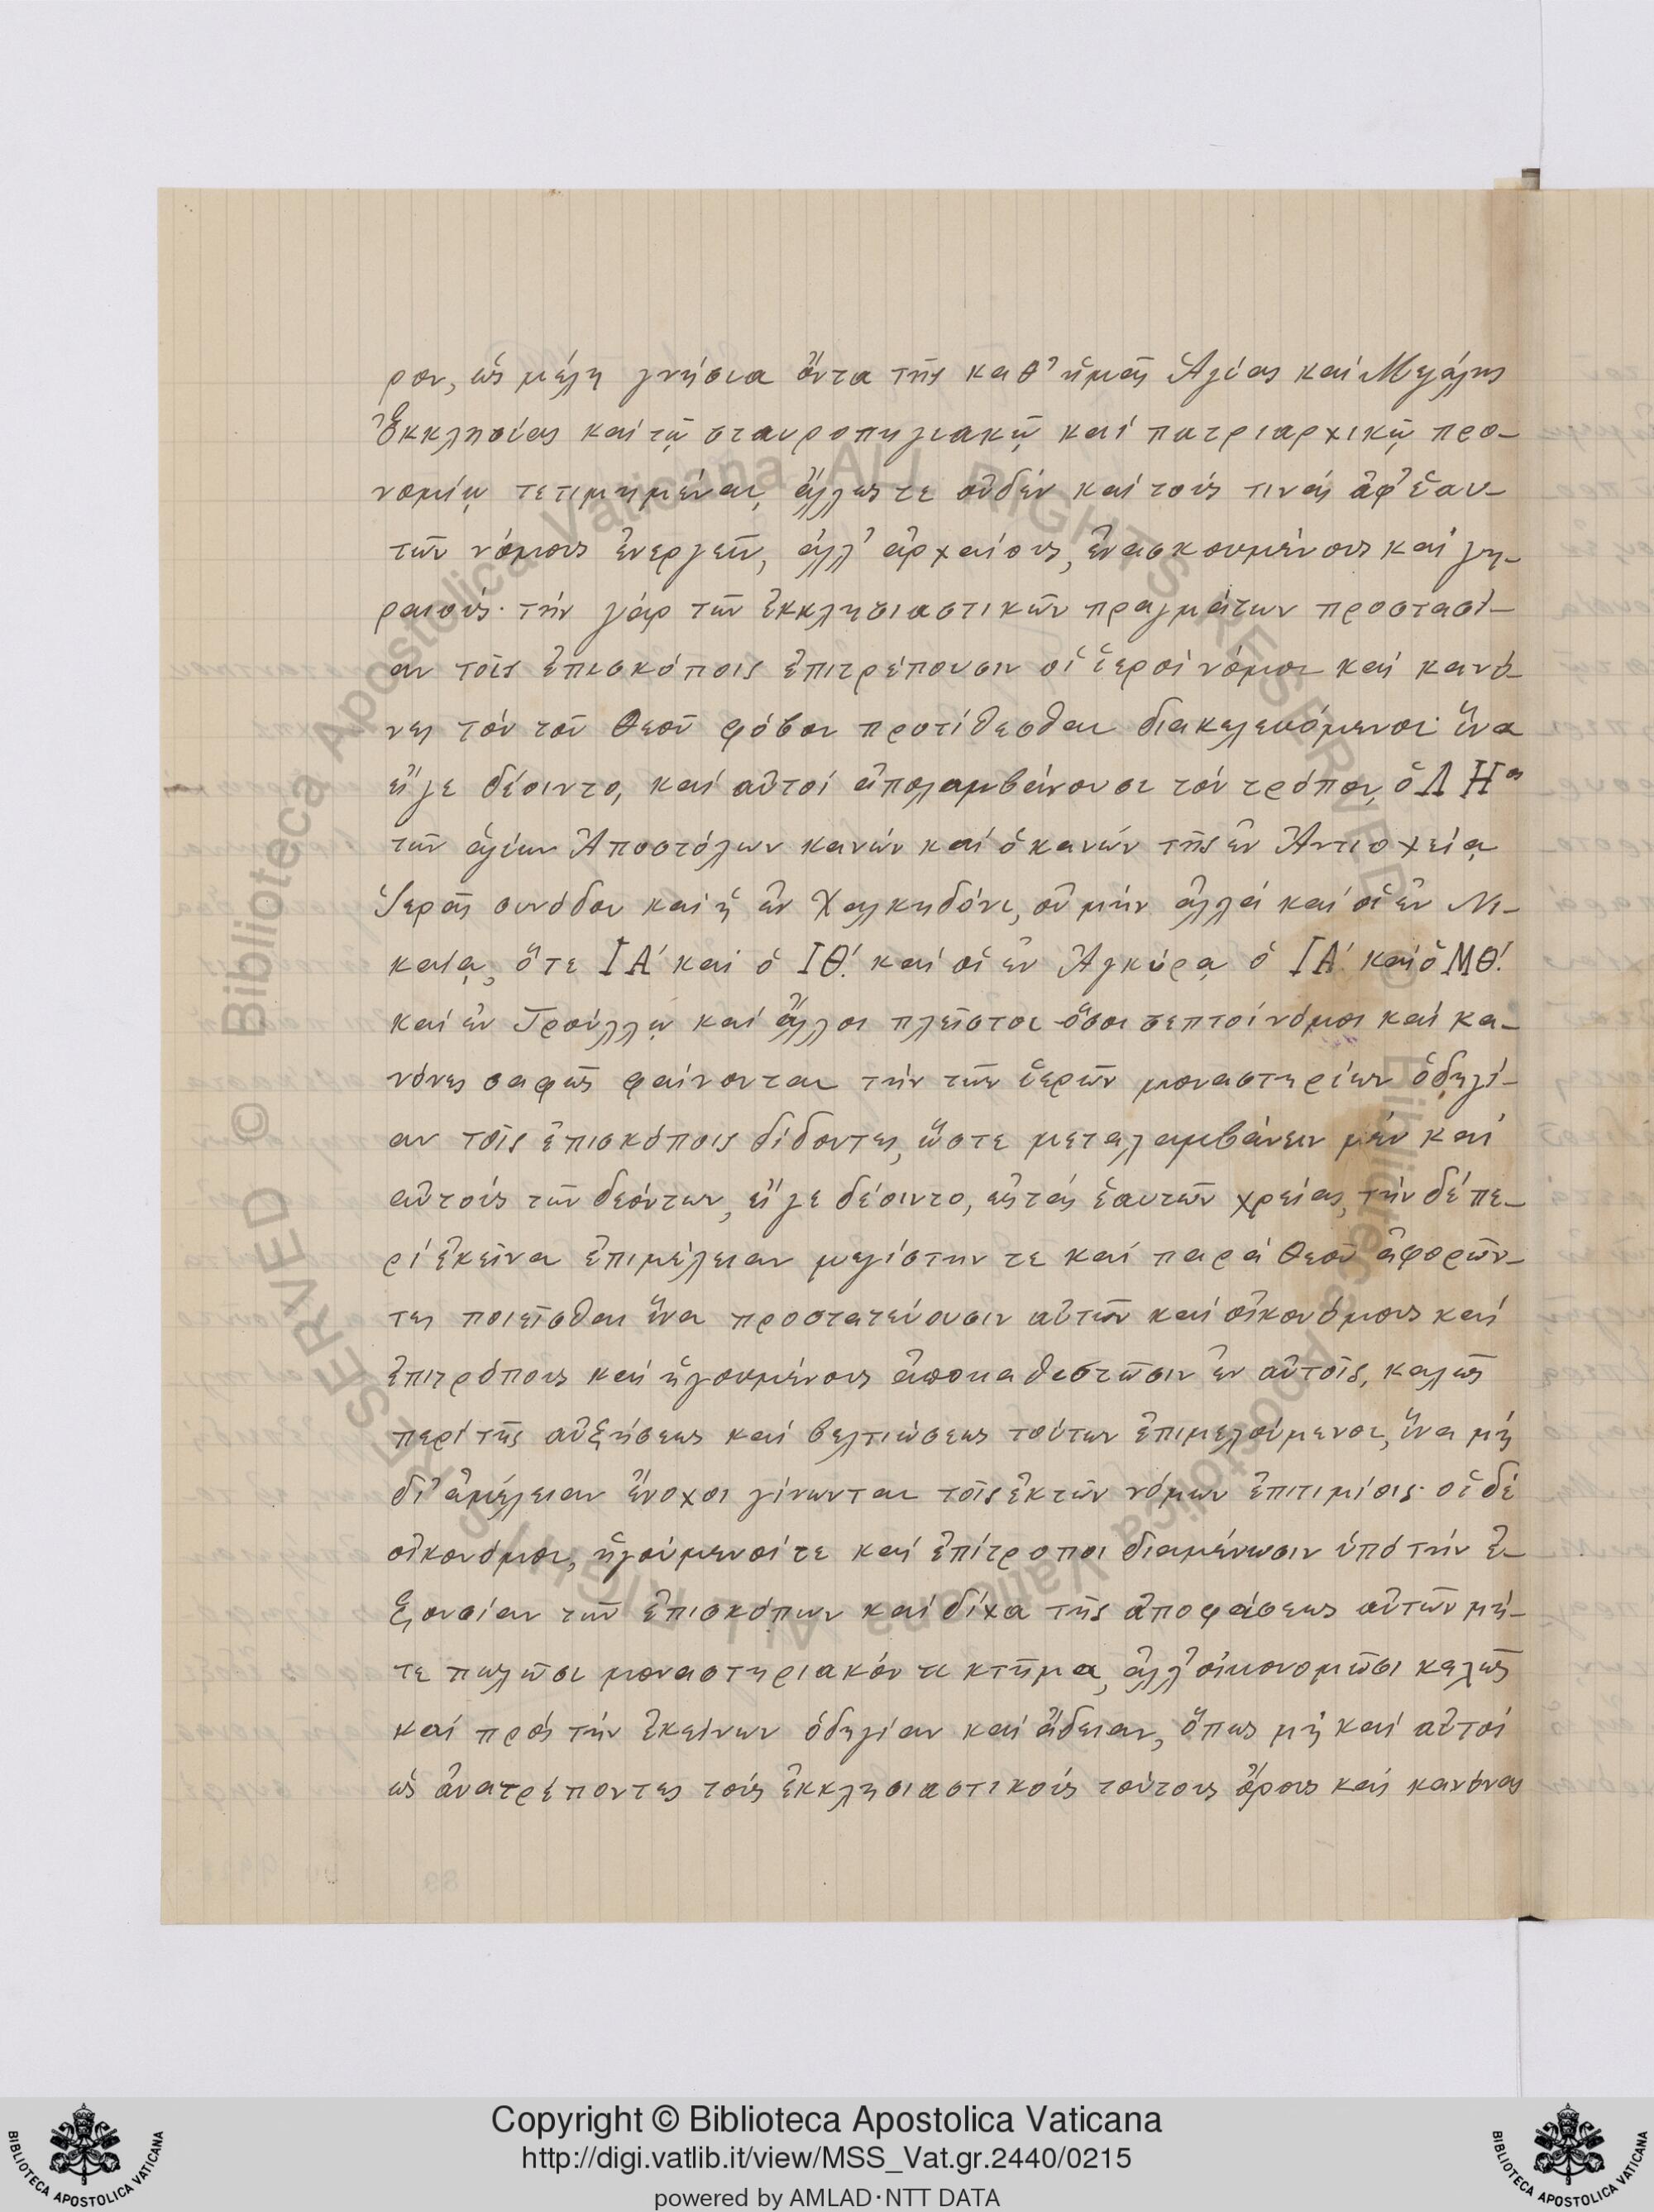 ρον, ὡς μέλη γνήσια ὄντα τῆς καθ’ ἡμᾶς Ἁγίας καὶ Μεγάλης
Ἐκκλησίας καὶ τῷ σταυροπηγιακῷ καὶ πατριαρχικῷ προ-
νομίῳ τετιμημέναι, ἄλλως τε οὐδὲν καὶ τοὺς τινὰς ἀφ’ ἑαυ-
τῶν νόμους ἐνεργεῖν, ἀλλ’ ἀρχαίους, ἐνασκουμένους καὶ γη-
ραιούς· τὴν γὰρ τῶν ἐκκλησιαστικῶν πραγμάτων προστασί-
αν τοῖς ἐπισκόποις ἐπιτρέπουσιν οἱ ἱεροὶ νόμοι καὶ κανό-
νες τὸν τοῦ Θεοῦ φόβον προτίθεσθαι διακελευόμενοι· ἵνα
εἴγε δέοιντο, καὶ αὐτοὶ ἀπολαμβάνουσι τὸν τρόπον, ὁ ΛΗος
τῶν ἁγίων Ἀποστόλων κανὼν καὶ ὁ κανὼν τῆς ἐν Ἀντιοχείᾳ
Ἱερᾶς συνόδου καὶ ἡ ἐν Χαλκηδόνι, οὐ μὴν ἀλλὰ καὶ οἱ ἐν Νι-
καίᾳ, ὅτε ΙΑ΄ καὶ ὁ ΙΘ΄. καὶ οἱ ἐν Ἀγκύρᾳ ὁ ΙΑ΄. καὶ ὁ ΜΘ΄.
καὶ ἐν Τρούλλῳ καὶ ἄλλοι πλεῖστοι ὅσοι σεπτοὶ νόμοι καὶ κα-
νόνες σαφῶς φαίνονται τὴν τῶν ἱερῶν μοναστηρίων ὁδηγί-
αν τοῖς ἐπισκόποις δίδοντες, ὥστε μεταλαμβάνειν μὲν καὶ
αὐτοὺς τῶν δεόντων, εἴγε δέοιντο, εἰς τὰς ἑαυτῶν χρείας, τὴν δὲ πε-
ρὶ ἐκεῖνα ἐπιμέλειαν μεγίστην τε καὶ παρὰ Θεοῦ ἀφορῶν-
τες ποιεῖσθαι ἵνα προστατεύουσιν αὐτῶν καὶ οἰκονόμους καὶ
ἐπιτρόπους καὶ ἡγουμένους ἀποκαθιστῶσιν ἐν αὐτοῖς, καλῶς
περὶ τῆς αὐξήσεως καὶ βελτιώσεως τούτων ἐπιμελούμενοι, ἵνα μὴ
δι’ ἀμέλειαν ἔνοχοι γίνωνται τοῖς ἐκ τῶν νόμων ἐπιτιμίοις· οἱ δὲ
οἰκονόμοι, ἡγούμενοί τε καὶ ἐπίτροποι διαμένωσιν ὑπὸ τὴν ἐ-
ξουσίαν τῶν ἐπισκόπων καὶ δίχα τῆς ἀποφάσεως αὐτῶν μή-
τε πωλῶσι μοναστηριακόν τι κτῆμα, ἀλλ’ οἰκονομῶσι καλῶς
καὶ πρὸς τὴν ἐκείνων ὁδηγίαν καὶ ἄδειαν, ὅπως μὴ καὶ αὐτοὶ
ὡς ἀνατρέποντες τοὺς ἐκκλησιαστικοὺς τούτους ὅρους καὶ κανόνας
Copyright © Biblioteca Apostolica Vaticana
http://digi.vatlib.it/view/MSS_Vat.gr.2440/0215
powered by AMLAD·NTT DATA
BIBLIOTECA APOSTOLICA VATICANA
BIBLIOTECA APOSTOLICA VATICANA